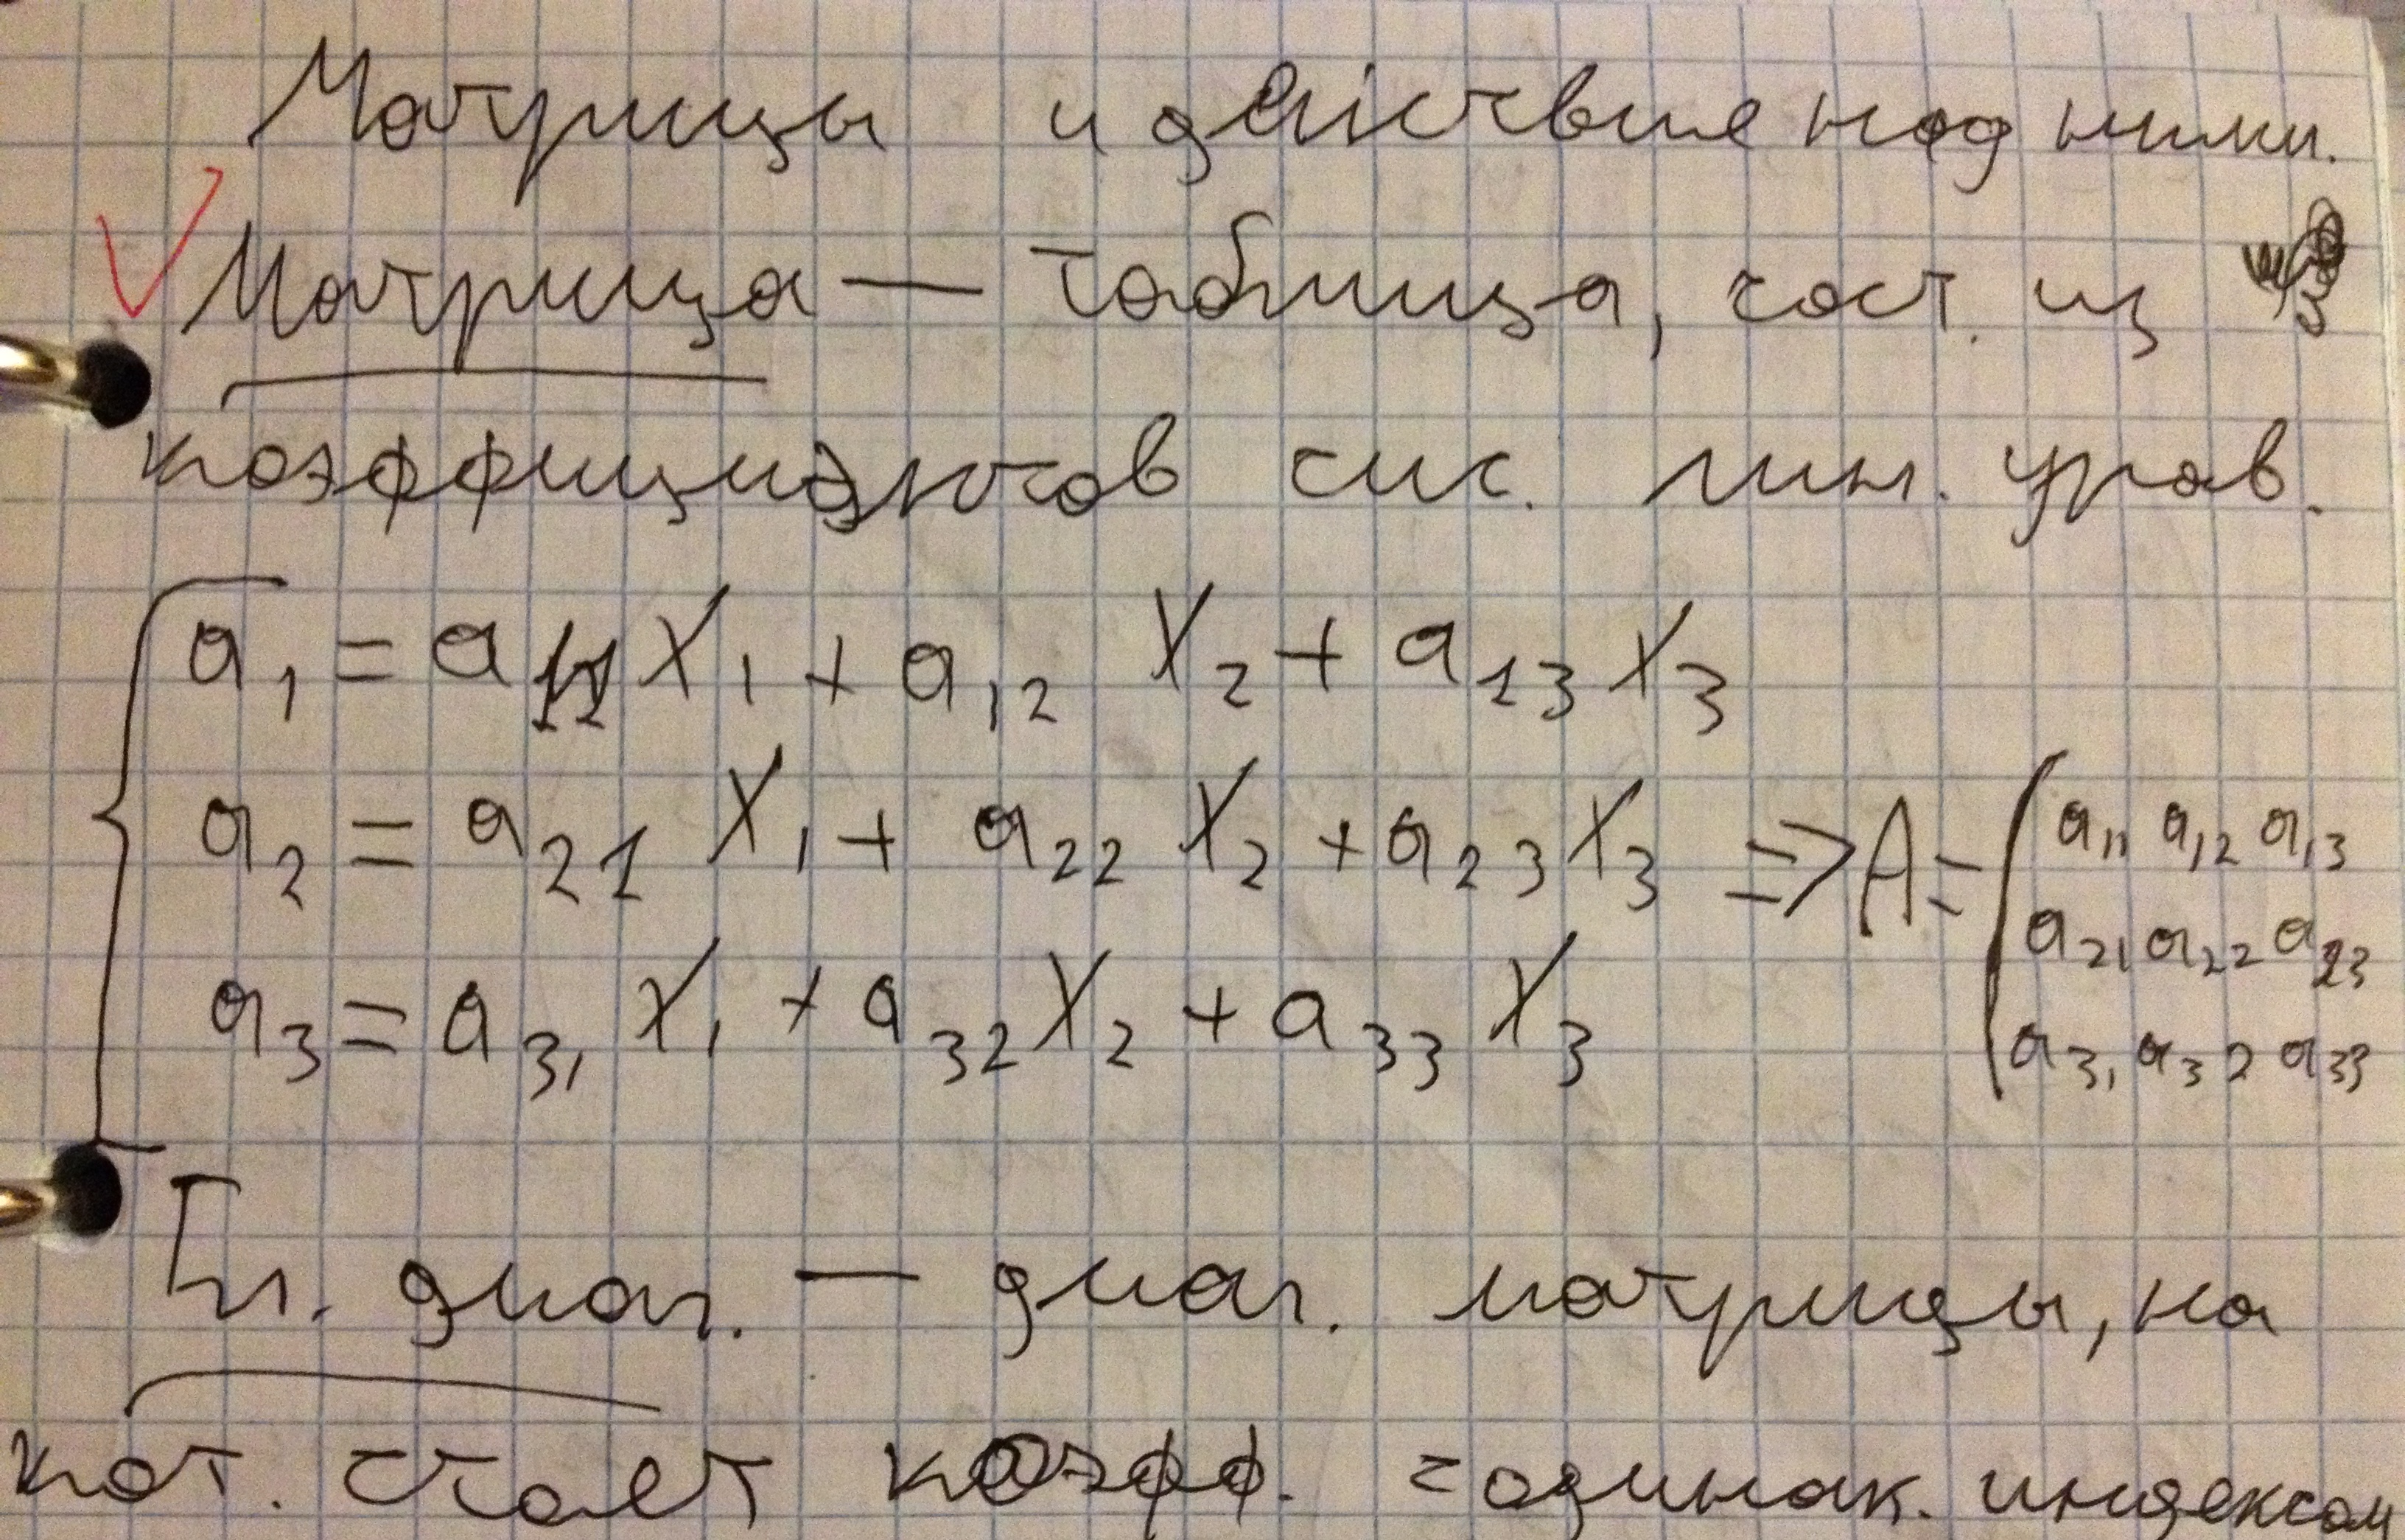 Матрицы и действие над ними.
Матрица — таблица, сост. из
коэффициэнтов сис. лин. урав.
a₁ = a₁₁ x₁ + a₁₂ x₂ + a₁₃ x₃
a₂ = a₂₁ x₁ + a₂₂ x₂ + a₂₃ x₃ => A = ( a₁₁ a₁₂ a₁₃
a₂₁ a₂₂ a₂₃
a₃ = a₃₁ x₁ + a₃₂ x₂ + a₃₃ x₃
a₃₁ a₃₂ a₃₃
Гл. диаг. — диаг. матрицы, на
кот. стоет коэфф. с одинак. индексом